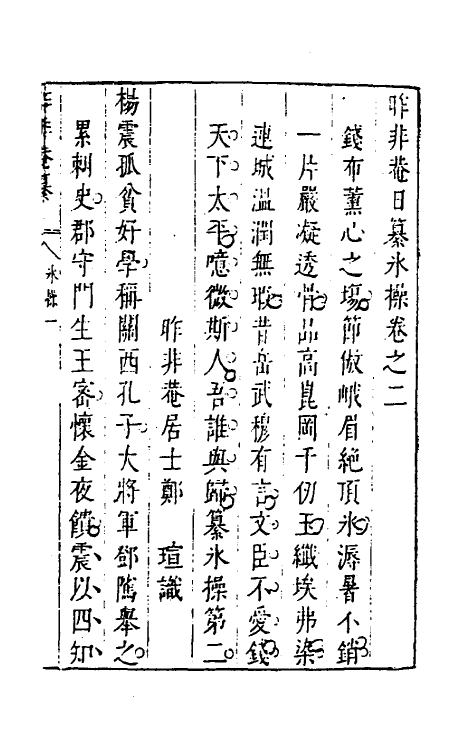 昨非菴日纂氷操卷之二
錢布薰心之場節倣峨眉絶頂氷溽暑不銷
一片嚴凝透骨品高崑岡千仞玉纎埃弗染
連城溫潤無瑕昔岳武穆有言文臣不愛錢
天下太平噫微斯人吾誰與歸纂氷操第二
昨非菴居士鄭 瑄識
楊震孤貧好學稱關西孔子大將軍鄧隲舉之
累刺史郡守門生王密懷金夜饋震以四知
昨非菴纂 氷操一